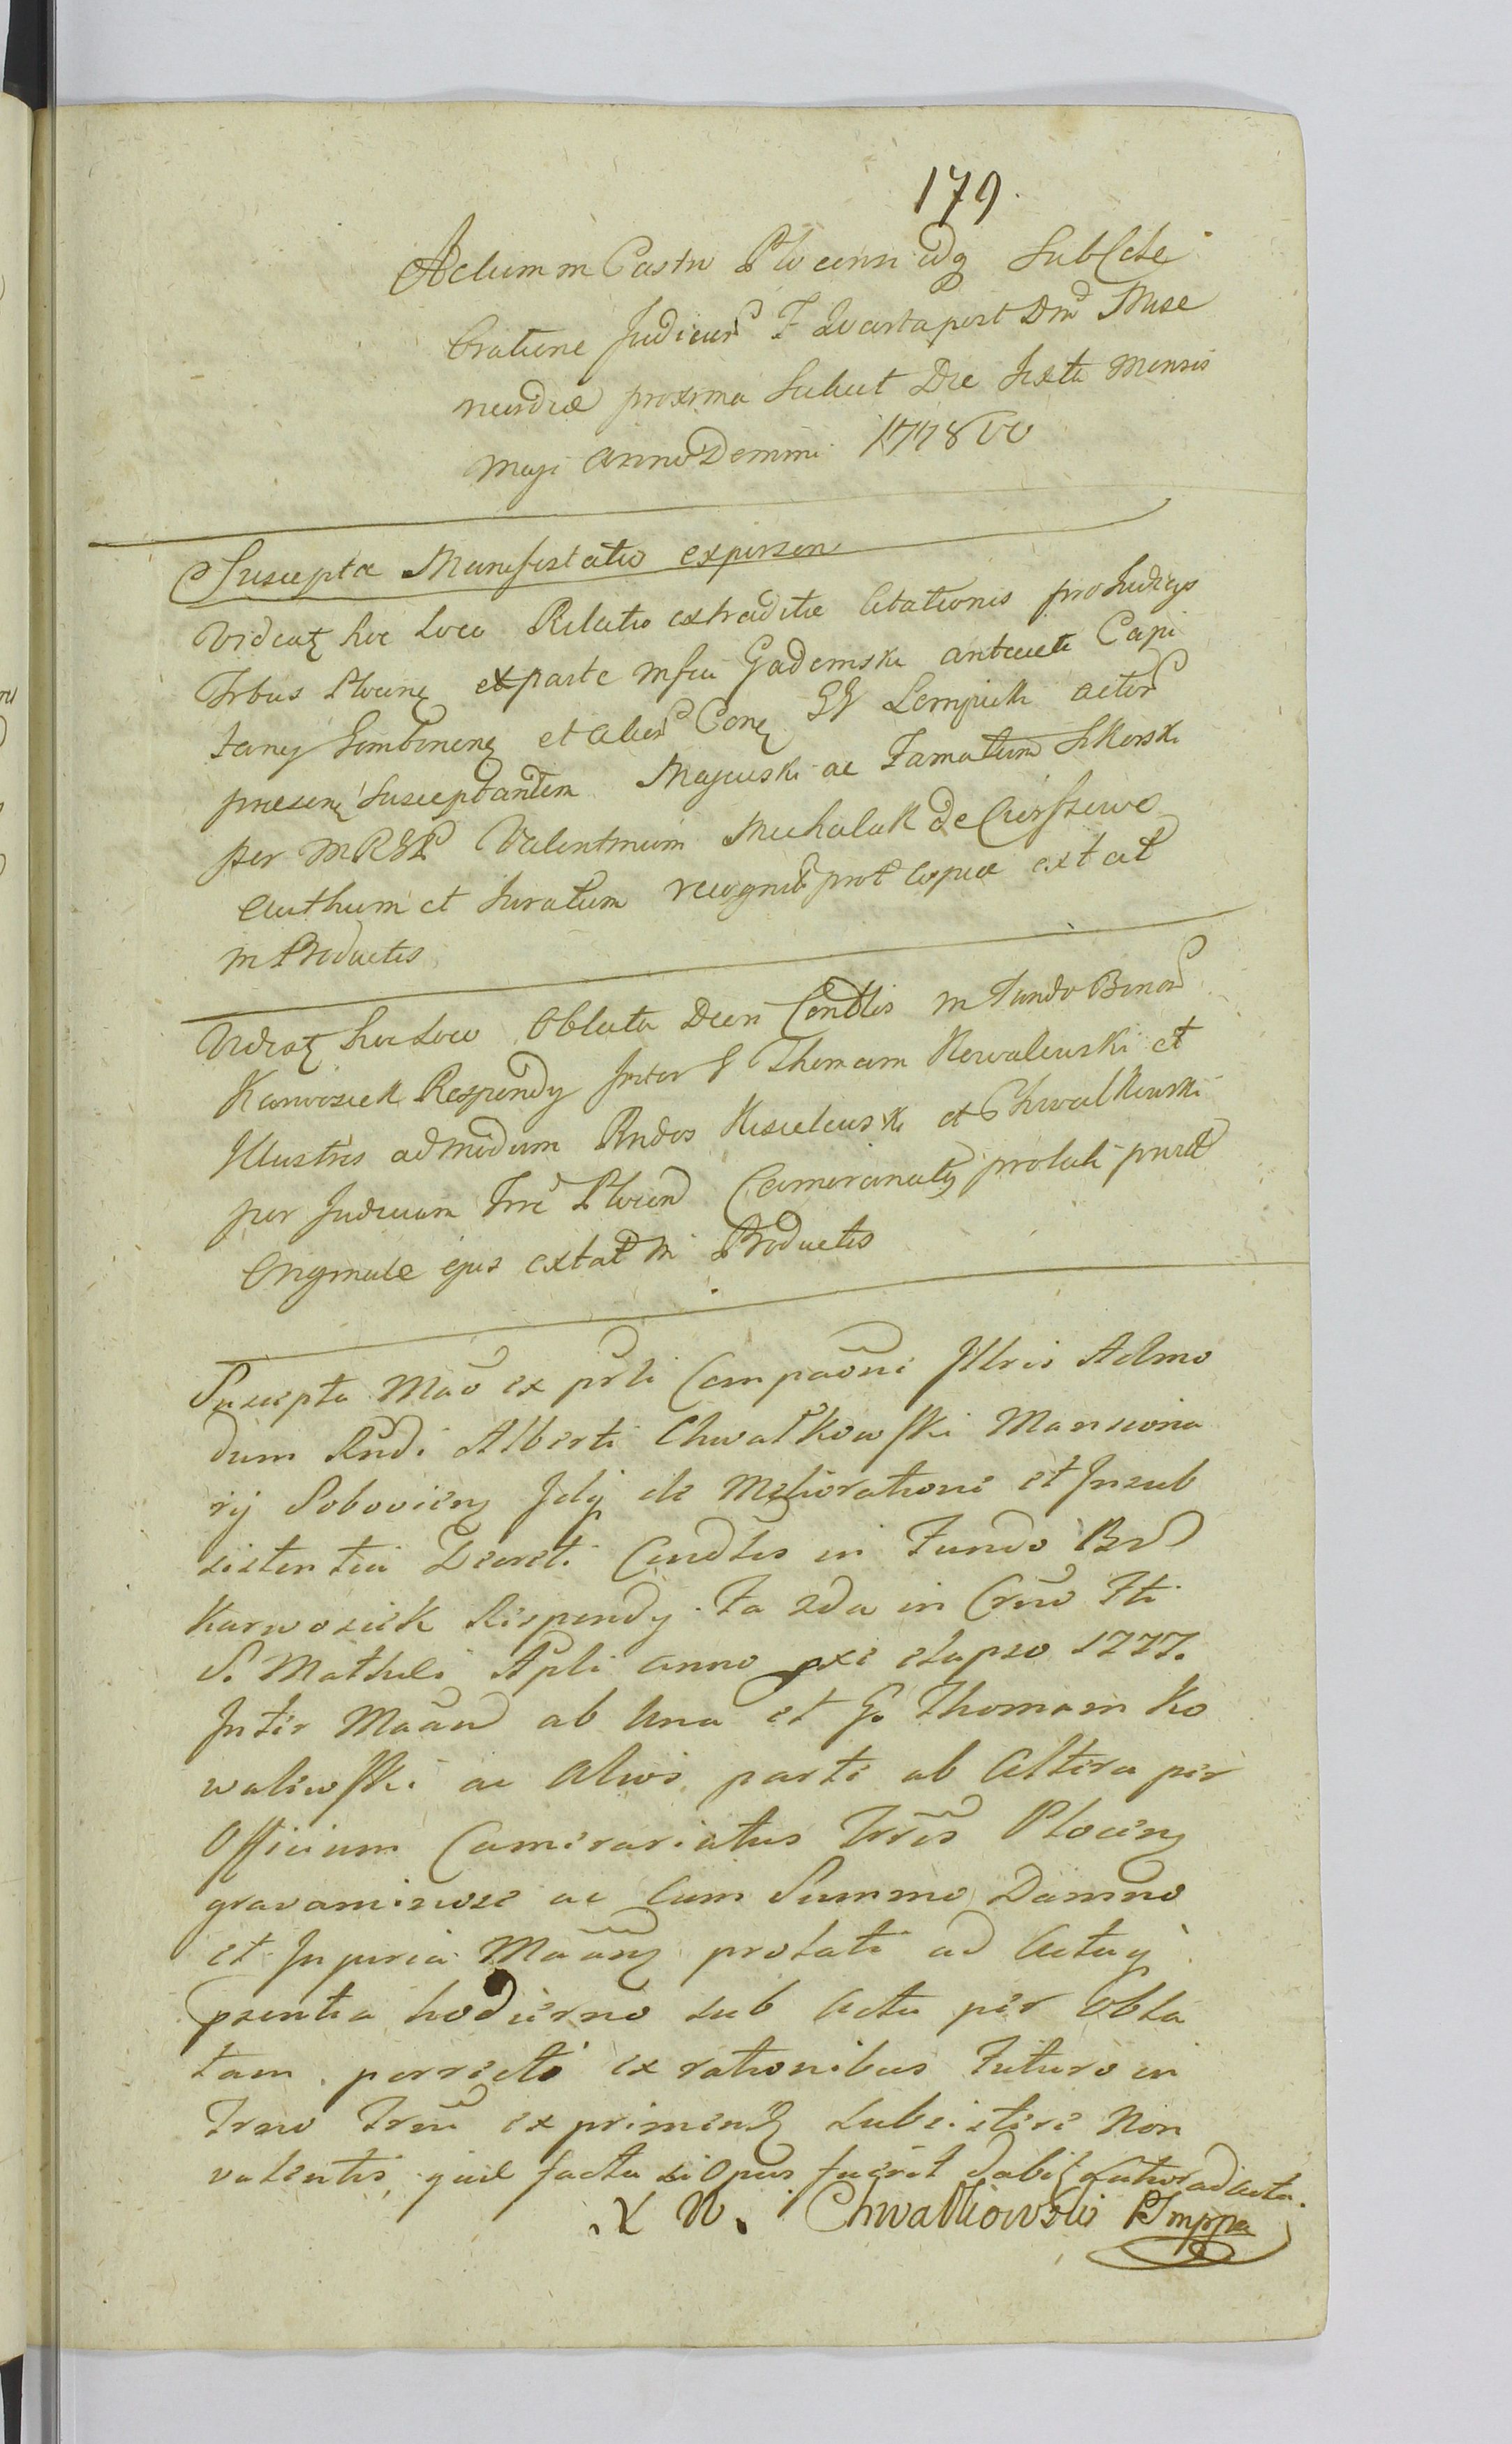 179.
Actum in Castro Plocensi idq Sub Cele
bratione Judicior F Quarta post Dni Mise
ricordiæ proxima Scilicet Die Sexta Mensis
Maji Anno Domini 1778vo
Suscepta Manifestatio ex person
Videatq hoc Loco Relatio extraditæ Citationis pro Judicys
Trbus Plocinq ex parte Mfici Gadomski Capi
tanej et alior Conq GG Lempicki actor
presenq Suscepdantem Majeuski ac Famatum Sikorski
per MRGR Valentinum Michalak de
authum et Juratum recognit prot copia extat
in Productis
Videatq hoc Loco Oblata Decri Condlis in Fundo Bonor
Karwosiek Respondy Inter G Thomam Kowaleuski et
Illustres admodum Rndos Kisieleuski et Chwalkouski
per Judicium Trre Plocen Camerariatq prolati prout
Originale ejus extat in Productis
Suscepta Mao ex prli Compaoni Illris Admo
dum Rndi Alberti Chwałkowski Mansiona
rij Sobovienq Idq de Melioratione et Insub
sistentia Decreti Condlis in Fundo Br
Karwosiek Respondy Fa 2da in Crno Fti
S. Mathei Apli anno pxe elapso 1777.
Inter Maan ab Una et G. Thomam Ko
walewski ac Alios parte ab Altera per
Officium Camerariatus Trris Plocenq
gravaminose ac Cum Summo Damno
et Injuria Maanq prolati ad Acta q
psentia hodierno sub Actu per Obla
tam porrecti ex rationibus Futuro in
Trno Trui exprimendq Subsistere Non
valentis, quæ facta si Opus fuerit dabitq Latior ad acta.
X W. Chwalkowski Mppa